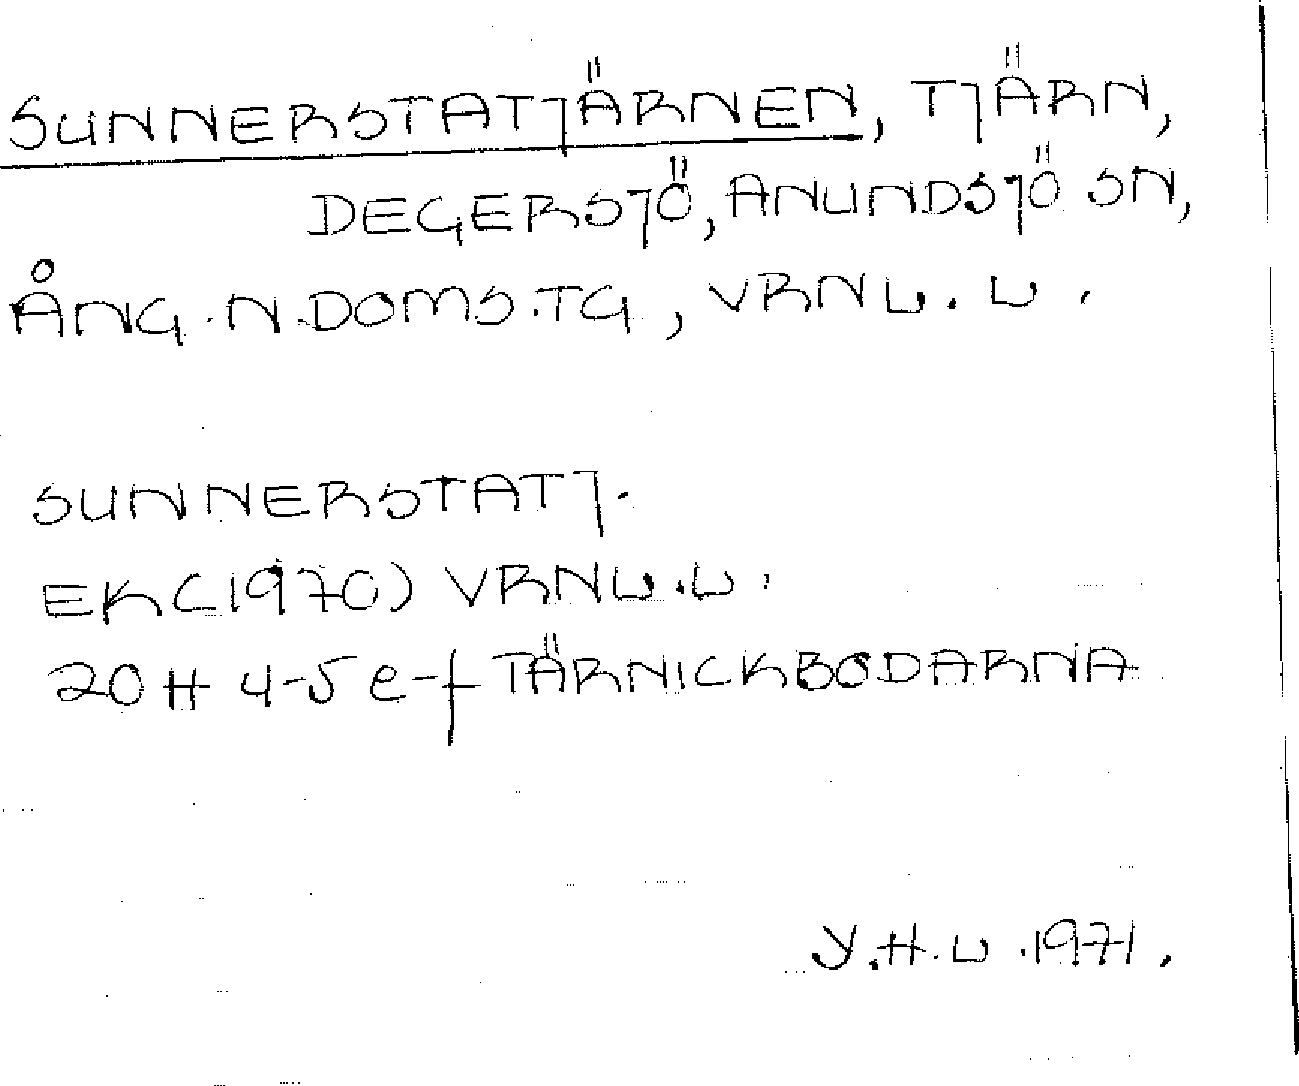 SUNNERSTATJÄRNEN, TJÄRN,
DEGERSJÖ, ANUNDSJÖ SN,
ÅNG. N. DOMS. TG, VRNL. L.
SUNNERSTATJ.
EK (1970) VRNL. L.
20 H 4-5 e-f TÄRNICKBODARNA
Y. H. L. 1971.